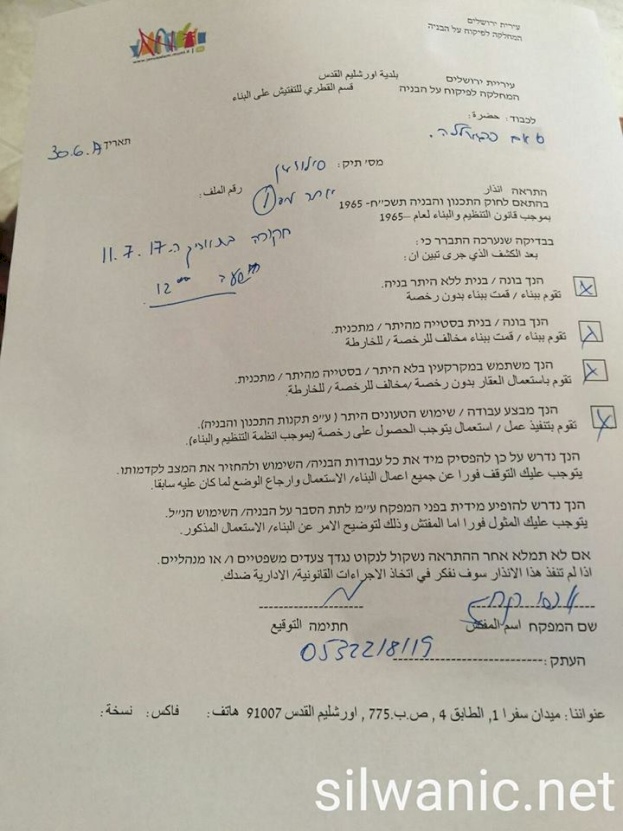 עירית ירושלים
המחלקה לפיקוח על הבניה
بلدية اورشليم القدس
قسم القطري للتفتيش على البناء
עיריית ירושלים
המחלקה לפיקוח על הבניה
לכבוד: حضرة:
תאריך 30.6.17
מס' תיק: סילוואן
رقم الملف:
התראה انذار
בהתאם לחוק התכנון והבניה תשכ"ח- 1965
بموجب قانون التنظيم والبناء لعام –1965
חקירה בתאריך ה. 11.7.17
12⁰⁰
בבדיקה שנערכה התברר כי:
بعد الكشف الذي جرى تبين ان:
הנך בונה / בנית ללא היתר בניה.
تقوم ببناء / قمت ببناء بدون رخصة
הנך בונה / בנית בסטייה מהיתר / מתכנית.
تقوم ببناء / قمت ببناء مخالف للرخصة / للخارطة
הנך משתמש במקרקעין בלא היתר / בסטייה מהיתר / מתכנית.
تقوم باستعمال العقار بدون رخصة /مخالف للرخصة / للخارطة.
הנך מבצע עבודה / שימוש הטעונים היתר ( ע"פ תקנות התכנון והבניה).
تقوم بتنفيذ عمل / استعمال يتوجب الحصول على رخصة (بموجب انظمة التنظيم والبناء).
הנך נדרש על כן להפסיק מיד את כל עבודות הבניה/ השימוש ולהחזיר את המצב לקדמותו.
يتوجب عليك التوقف فورا عن جميع اعمال البناء/ الاستعمال وارجاع الوضع لما كان عليه سابقا.
הנך נדרש להופיע מידית בפני המפקח ע"מ לתת הסבר על הבניה/ השימוש הנ"ל.
يتوجب عليك المثول فورا اما المفتش وذلك لتوضيح الامر عن البناء/ الاستعمال المذكور.
אם לא תמלא אחר ההתראה נשקול לנקוט נגדך צעדים משפטיים ו/ או מנהליים.
اذا لم تنفذ هذا الانذار سوف نفكر في اتخاذ الاجراءات القانونية/ الادارية ضدك.
שם המפקח اسم المفتش חתימה التوقيع
העתק: 0532218119
عنواننا: ميدان سفرا 1, الطابق 4 , ص.ب.775 , اورشليم القدس 91007 هاتف: فاكس: نسخة:
silwanic.net